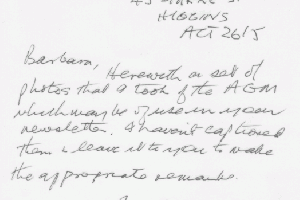 HIGGINS
ACT 2615
Barbara,
Herewith a set of
photos that I took of the AGM
which may be of use in your
newsletter. I haven't captioned
them & leave it to you to make
the appropriate remarks.